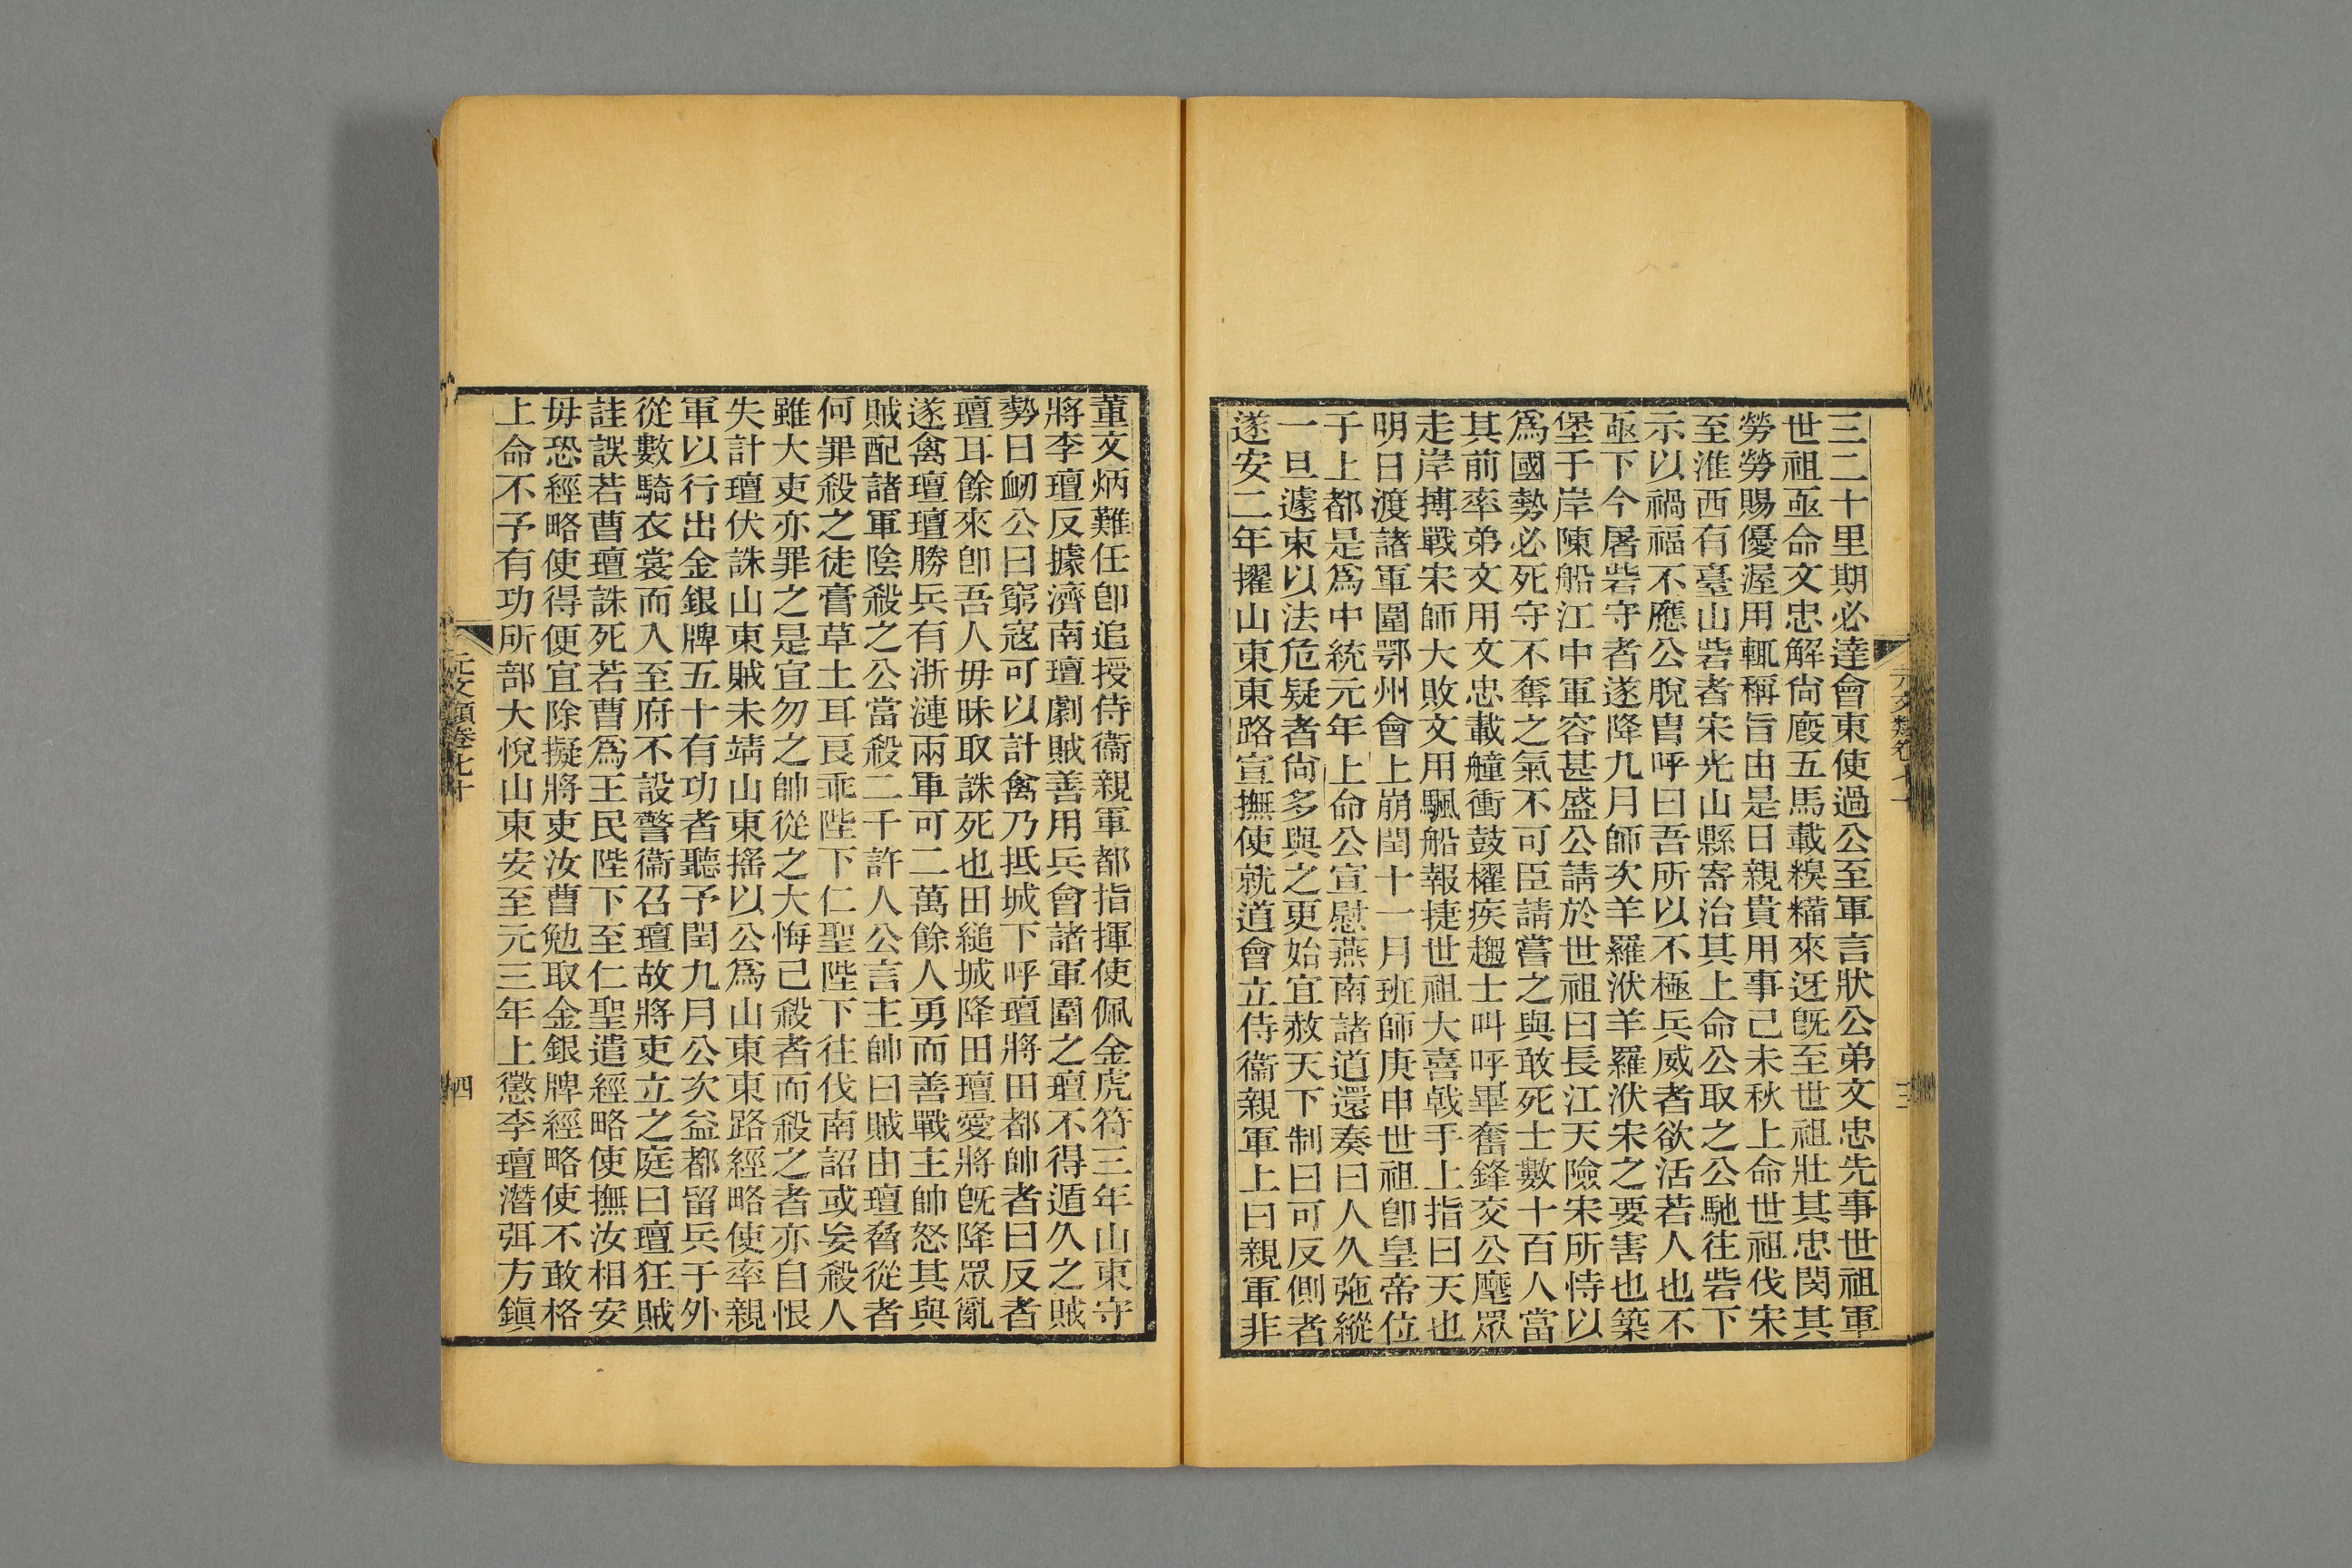 三二十里期必達會東使過公至軍言狀公弟文忠先事世祖軍
世祖亟命文忠解尙廏五馬載糗糒來迓旣至世祖壯其忠閔其
勞勞賜優渥用輒稱旨由是日親貴用事己未秋上命世祖伐宋
至淮西有臺山砦者宋光山縣寄治其上命公取之公馳往砦下
示以禍福不應公脫冑呼曰吾所以不極兵威者欲活若人也不
亟下今屠砦守者遂降九月師次羊羅洑羊羅洑宋之要害也築
堡于岸陳船江中軍容甚盛公請於世祖曰長江天險宋所恃以
爲國勢必死守不奪之氣不可臣請嘗之與敢死士數十百人當
其前率弟文用文忠載艟衝鼓櫂疾趨士叫呼畢奮鋒交公麾眾
走岸搏戰宋師大敗文用颿船報捷世祖大喜戟手上指曰天也
明日渡諸軍圍鄂州會上崩閏十一月班師庚申世祖卽皇帝位
于上都是爲中統元年上命公宣慰燕南諸道還奏曰人久弛縱
一旦遽束以法危疑者尙多與之更始宜赦天下制曰可反側者
遂安二年擢山東東路宣撫使就道會立侍衞親軍上曰親軍非
元文類卷七十
三
董文炳難任卽追授侍衞親軍都指揮使佩金虎符三年山東守
將李璮反據濟南璮劇賊善用兵會諸軍圍之璮不得遁久之賊
勢日衂公曰窮寇可以計禽乃抵城下呼璮將田都帥者曰反者
璮耳餘來卽吾人毋昧取誅死也田縋城降田璮愛將旣降眾亂
遂禽璮璮勝兵有浙漣兩軍可二萬餘人勇而善戰主帥怒其與
賊配諸軍陰殺之公當殺二千許人公言主帥曰賊由璮脅從者
何罪殺之徒膏草土耳良乖陛下仁聖陛下往伐南詔或妄殺人
雖大吏亦罪之是宜勿之帥從之大悔己殺者而殺之者亦自恨
失計璮伏誅山東賊未靖山東搖以公爲山東東路經略使率親
軍以行出金銀牌五十有功者聽予閏九月公次益都留兵于外
從數騎衣裳而入至府不設警衞召璮故將吏立之庭曰璮狂賊
詿誤若曹璮誅死若曹爲王民陛下至仁聖遣經略使撫汝相安
毋恐經略使得便宜除擬將吏汝曹勉取金銀牌經略使不敢格
上命不予有功所部大悅山東安至元三年上懲李璮潛弭方鎭
元文類卷七十
四